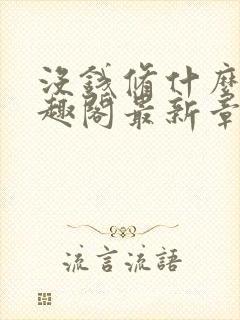 沒錢脩什麼
趣閣最新章
流言流語